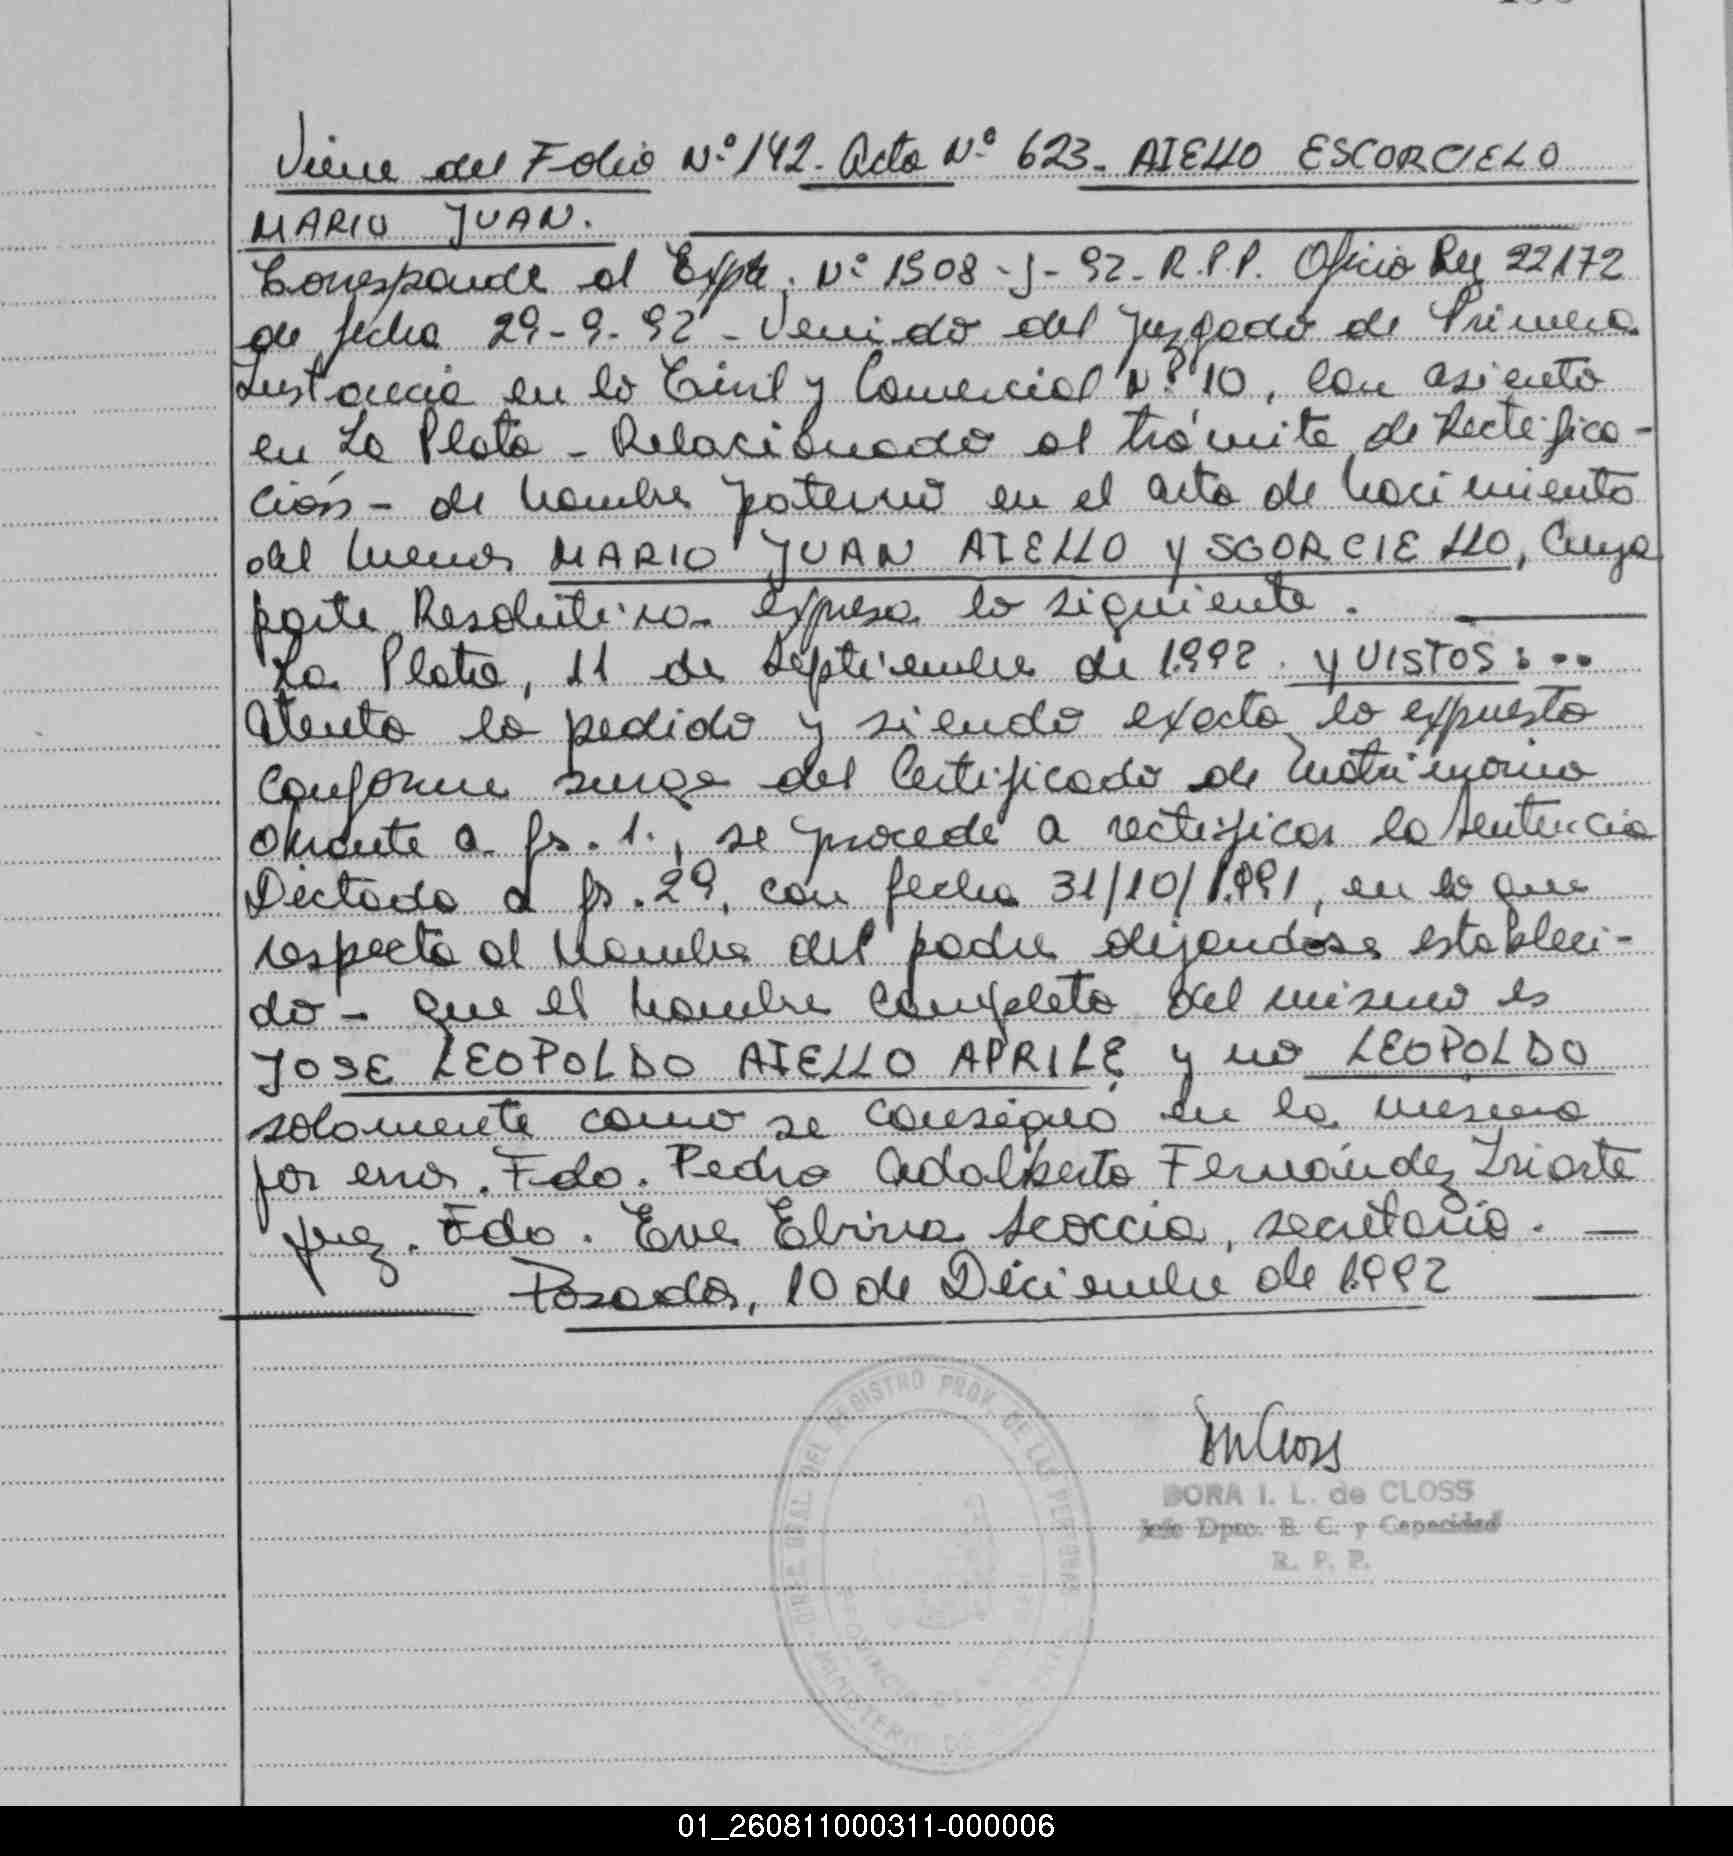 Viene del Folio Nº 142. Acta Nº 623. AIELLO ESCORCIELO
MARIO JUAN.
Corresponde al Expte. Nº 1508-J-92-R.P.P. Oficio Ley 22172
de fecha 29-9-92 - Venido del Juzgado de Primera
Instancia en lo Civil y Comercial Nº 10, con asiento
en La Plata - Relacionado al trámite de Rectifica-
ción - de nombre paterno en el acta de nacimiento
del menor MARIO JUAN AIELLO y SGORCIELLO, Cuya
parte Resolutiva expresa lo siguiente.
La Plata, 11 de Septiembre de 1.992. Y VISTOS:..
Atento lo pedido y siendo exacto lo expuesto
conforme surge del Certificado de Matrimonio
obrante a fs. 1., se procede a rectificar la sentencia
Dictada a fs. 29, con fecha 31/10/1.991, en lo que
respecta al nombre del padre dejandose estableci-
do - que el nombre completo del mismo es
JOSE LEOPOLDO AIELLO APRILE y no LEOPOLDO
solamente como se consignó en la misma
por error. Fdo. Pedro Adalberto Fernández Iriarte
Juez. Fdo. Eve Elvira Scoccia, secretaria.
Posadas, 10 de Diciembre de 1.992
DIREC. GRAL DEL REGISTRO PROV. DE LAS PERSONAS
PROVINCIA DE
MINISTERIO DE
DORA I. L. de CLOSS
Jefe Dpto. E. C. y Capacidad
R. P. P.
01_260811000311-000006